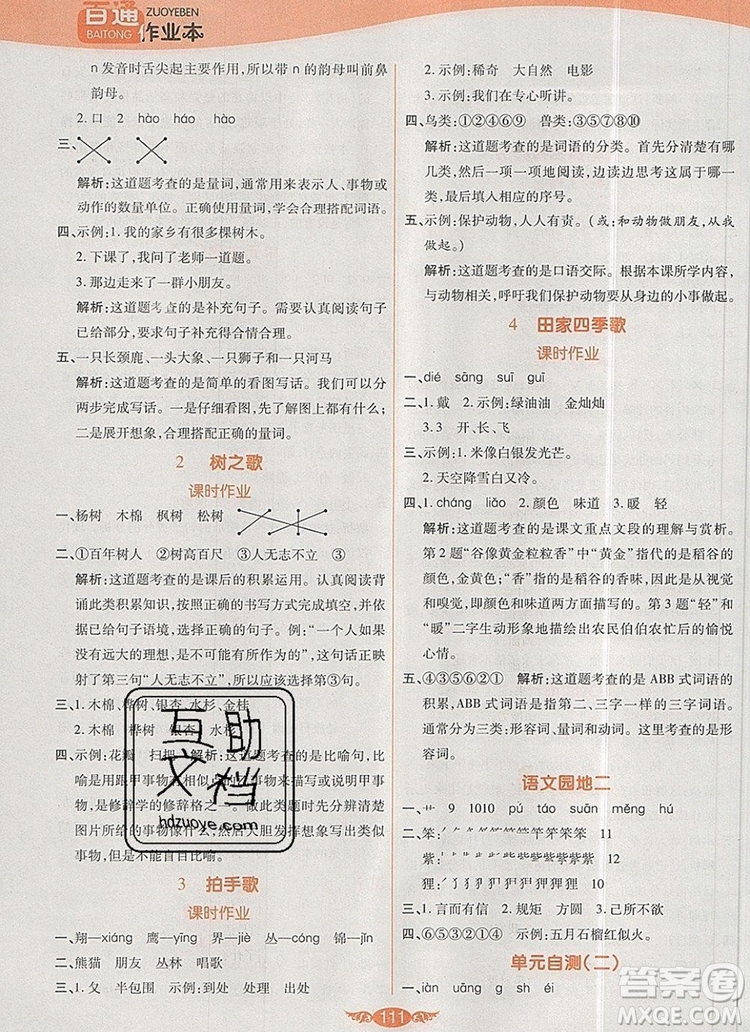 百通
ZUOYEBEN
BAITONG
作业本
n 发音时舌尖起主要作用，所以带 n 的韵母叫前鼻
韵母。
2. 口 2 hào háo hào
三、
解析：这道题考查的是量词，通常用来表示人、事物或
动作的数量单位。正确使用量词，学会合理搭配词语。
四、示例：1. 我的家乡有好多棵树木。
2. 下课了，我问了老师一道题。
3. 那边走来了一群小朋友。
解析：这道题考查的是补充句子。认真阅读句子
已给部分，大胆发挥想象，将句子补充完整，尽可
能写得合情合理。
五、一只长颈鹿、一头大象、一只狮子、一只河马
解析：这道题考查的是简单的看图写话。可以分
两步完成写话。一是仔细看图，图上都有什么；
二是展开想象，合理搭配正确的量词。
2 树之歌
课时作业
一、杨树 木棉 枫树 松树
二、①百年树人 ②树高百尺 ③人无志不立 ③
解析：这道题考查的是课后的积累运用。认真阅读背
诵此类积累知识，按照正确的书写方式完成填空。可
根据句子语境，选择正确的句子。例：“一个人如果
没有远大的理想，是很难有所成就的”这句话正好反
映了第三句“人无志不立”，因此应选择第③句。
三、1. 木棉、桦树、银杏、水杉、金桂
2. 木棉 桦树 银杏 水杉
四、示例：花瓣 扫把 解析：这道题考查的是比喻句，
就是用跟甲事物有相似点的乙事物来描写或说明甲事
物，是修辞学的修辞格之一。此题应首先分辨清楚
图片内的事物像什么，然后大胆发挥想象，写出类似
事物，但不能乱比喻。
3 拍手歌
课时作业
一、翔—xiáng 鹰—yīng 界—jiè 丛—cóng 锦—jǐn
二、熊猫 朋友 丛林 唱歌
三、1. 父 半包围 示例：到处 处处 处理
2. 示例：稀奇 大自然 电影
3. 示例：我们在专心听讲。
四、鸟类：①②④⑥⑨ 兽类：③⑤⑦⑧⑩
解析：这道题考查的是词语的分类。首先分清楚有哪
几类，然后一项一项地阅读，边读边思考这些词语应
该填入哪个类别，最后填入相应的序号。
五、示例：保护动物，人人有责。（或：和动物做朋友，从我
做起。）
解析：这道题考查的是口语交际。根据本课所学内容，
结合动物，呼吁我们保护动物应从身边的小事做起。
4 田家四季歌
课时作业
一、dié sāng suī guī
二、1. 戴 2. 示例：绿油油 金灿灿
3. 3 开、长、飞
三、示例：1. 米像白银发光芒。
2. 天空降雪白又冷。
四、1. cháng liǎo 2. 颜色 味道 3. 暖 轻
解析：这道题考查的是课文重点文段的理解与赏析。
第 2 题“谷像黄金粒粒香”中“黄金”指代的是稻谷的
颜色，金黄色；“香”指的是稻谷的香味，因此从视觉
和嗅觉，即颜色和味道两方面描写的。第 3 题“轻”和
“暖”二字生动形象地描绘出农民伯伯愉快的愉悦
心情。
五、④③⑤⑥②① 解析：这道题考查的是 ABB 式词语的
积累，ABB 式词语指第二、三字一样的三字词语。
通常分为三类：形容词、量词、动词。本题都是形
容词。
语文园地二
一、艹 9 1010 pú táo suān měng hú
二、笨： 11
紫： 12
狸： 10
三、1. 言而有信 2. 规矩 方圆 3. 己所不欲
四、⑥⑤③④①② 示例：五月石榴红似火。
单元自测(二)
一、jàn uāng g sh éi
互助
文档
hdzuoye.com
答案圈
MXQE.COM
111